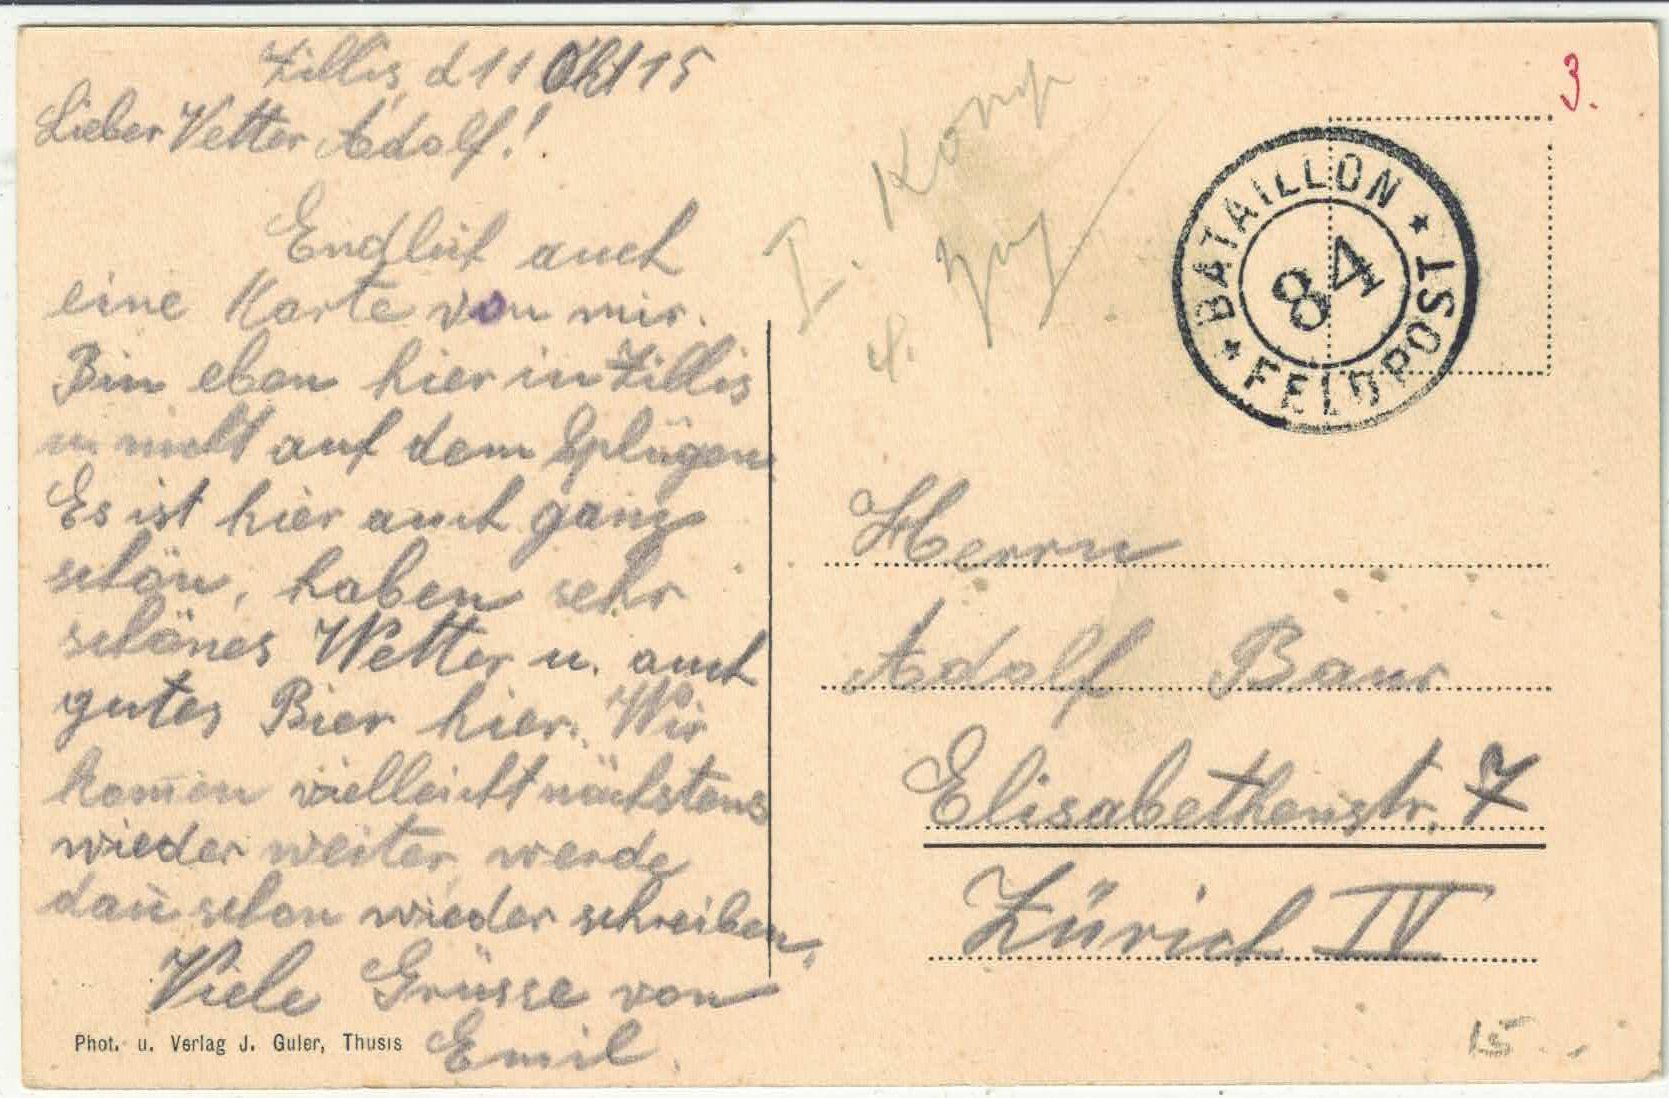 Zillis, d 11 Okt 15
Lieber Vetter Adolf!
Endlich auch
eine Karte von mir.
Bin eben hier in Zillis
u. nicht auf dem Splügen
Es ist hier auch ganz
schön, haben sehr
schönes Wetter u. auch
gutes Bier hier. Wir
kom̅en vielleicht nächstens
wieder weiter, werde
dan̅ schon wieder schreiben,
Viele Grüsse von
Emil.
Phot. u. Verlag J. Guler, Thusis
I. Komp
4. Zug
3.
BATAILLON
84
FELDPOST
Herrn
Adolf Baur
Elisabethenstr. 7
Zürich IV
15.-